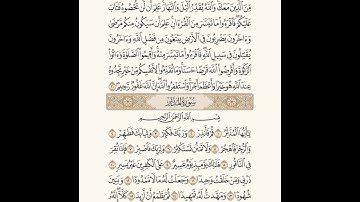 مِّنَ ٱلَّذِينَ مَعَكَۚ وَٱللَّهُ يُقَدِّرُ ٱلَّيۡلَ وَٱلنَّهَارَۚ عَلِمَ أَن لَّن تُحۡصُوهُ فَتَابَ
عَلَيۡكُمۡۖ فَٱقۡرَءُواْ مَا تَيَسَّرَ مِنَ ٱلۡقُرۡءَانِۚ عَلِمَ أَن سَيَكُونُ مِنكُم مَّرۡضَىٰ
وَءَاخَرُونَ يَضۡرِبُونَ فِي ٱلۡأَرۡضِ يَبۡتَغُونَ مِن فَضۡلِ ٱللَّهِ وَءَاخَرُونَ
يُقَٰتِلُونَ فِي سَبِيلِ ٱللَّهِۖ فَٱقۡرَءُواْ مَا تَيَسَّرَ مِنۡهُۚ وَأَقِيمُواْ ٱلصَّلَوٰةَ وَءَاتُواْ
ٱلزَّكَوٰةَ وَأَقۡرِضُواْ ٱللَّهَ قَرۡضًا حَسَنٗاۚ وَمَا تُقَدِّمُواْ لِأَنفُسِكُم مِّنۡ خَيۡرٖ تَجِدُوهُ
عِندَ ٱللَّهِ هُوَ خَيۡرٗا وَأَعۡظَمَ أَجۡرٗاۚ وَٱسۡتَغۡفِرُواْ ٱللَّهَۖ إِنَّ ٱللَّهَ غَفُورٞ رَّحِيمُۢ ٢٠
سُورَةُ المُدَّثِّرِ
بِسۡمِ ٱللَّهِ ٱلرَّحۡمَٰنِ ٱلرَّحِيمِ
يَٰٓأَيُّهَا ٱلۡمُدَّثِّرُ ١ قُمۡ فَأَنذِرۡ ٢ وَرَبَّكَ فَكَبِّرۡ ٣ وَثِيَابَكَ فَطَهِّرۡ ٤
وَٱلرُّجۡزَ فَٱهۡجُرۡ ٥ وَلَا تَمۡنُن تَسۡتَكۡثِرُ ٦ وَلِرَبِّكَ فَٱصۡبِرۡ ٧ فَإِذَا نُقِرَ
فِي ٱلنَّاقُورِ ٨ فَذَٰلِكَ يَوۡمَئِذٖ يَوۡمٌ عَسِيرٌ ٩ عَلَى ٱلۡكَٰفِرِينَ غَيۡرُ يَسِيرٖ ١٠
ذَرۡنِي وَمَنۡ خَلَقۡتُ وَحِيدٗا ١١ وَجَعَلۡتُ لَهُۥ مَالٗا مَّمۡدُودٗا ١٢ وَبَنِينَ
شُهُودٗا ١٣ وَمَهَّدتُّ لَهُۥ تَمۡهِيدٗا ١٤ ثُمَّ يَطۡمَعُ أَنۡ أَزِيدَ ١٥ كَلَّآۖ إِنَّهُۥ